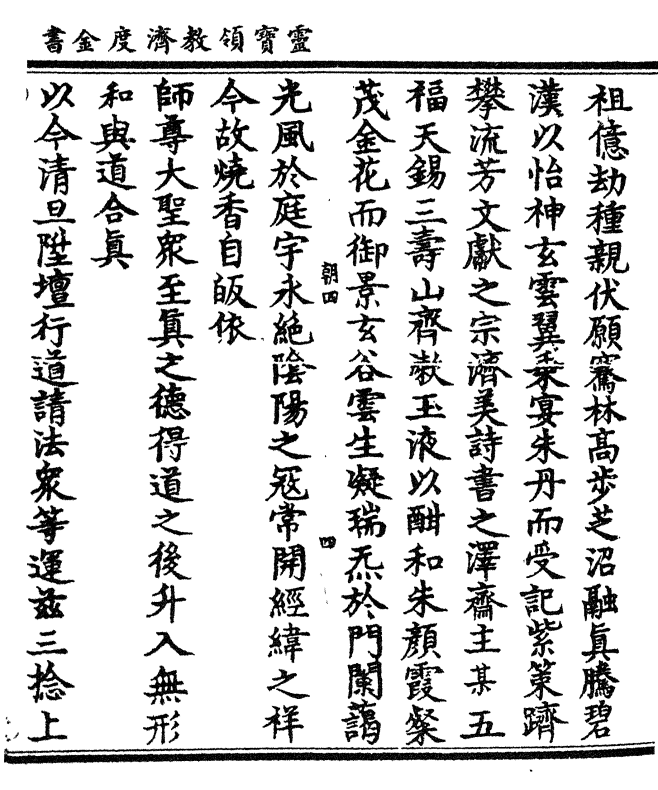 靈寶領教濟度金書
祖億劫種親伏願騫林高步芝沼融眞騰碧
漢以怡神玄雲翼乗宴朱丹而受記紫策躋
攀流芳文獻之宗濟美詩書之澤齋主某五
福天錫三壽山齊漱玉液以酣和朱顏霞粲
茂金花而御景玄谷雲生凝瑞炁於門闌藹
朝四
四
光風於庭宇永絕陰陽之冦常開經緯之祥
今故燒香自皈依
師尊大聖衆至眞之德得道之後升入無形
和與道合眞
以今清旦陞壇行道請法衆等運茲三捻上